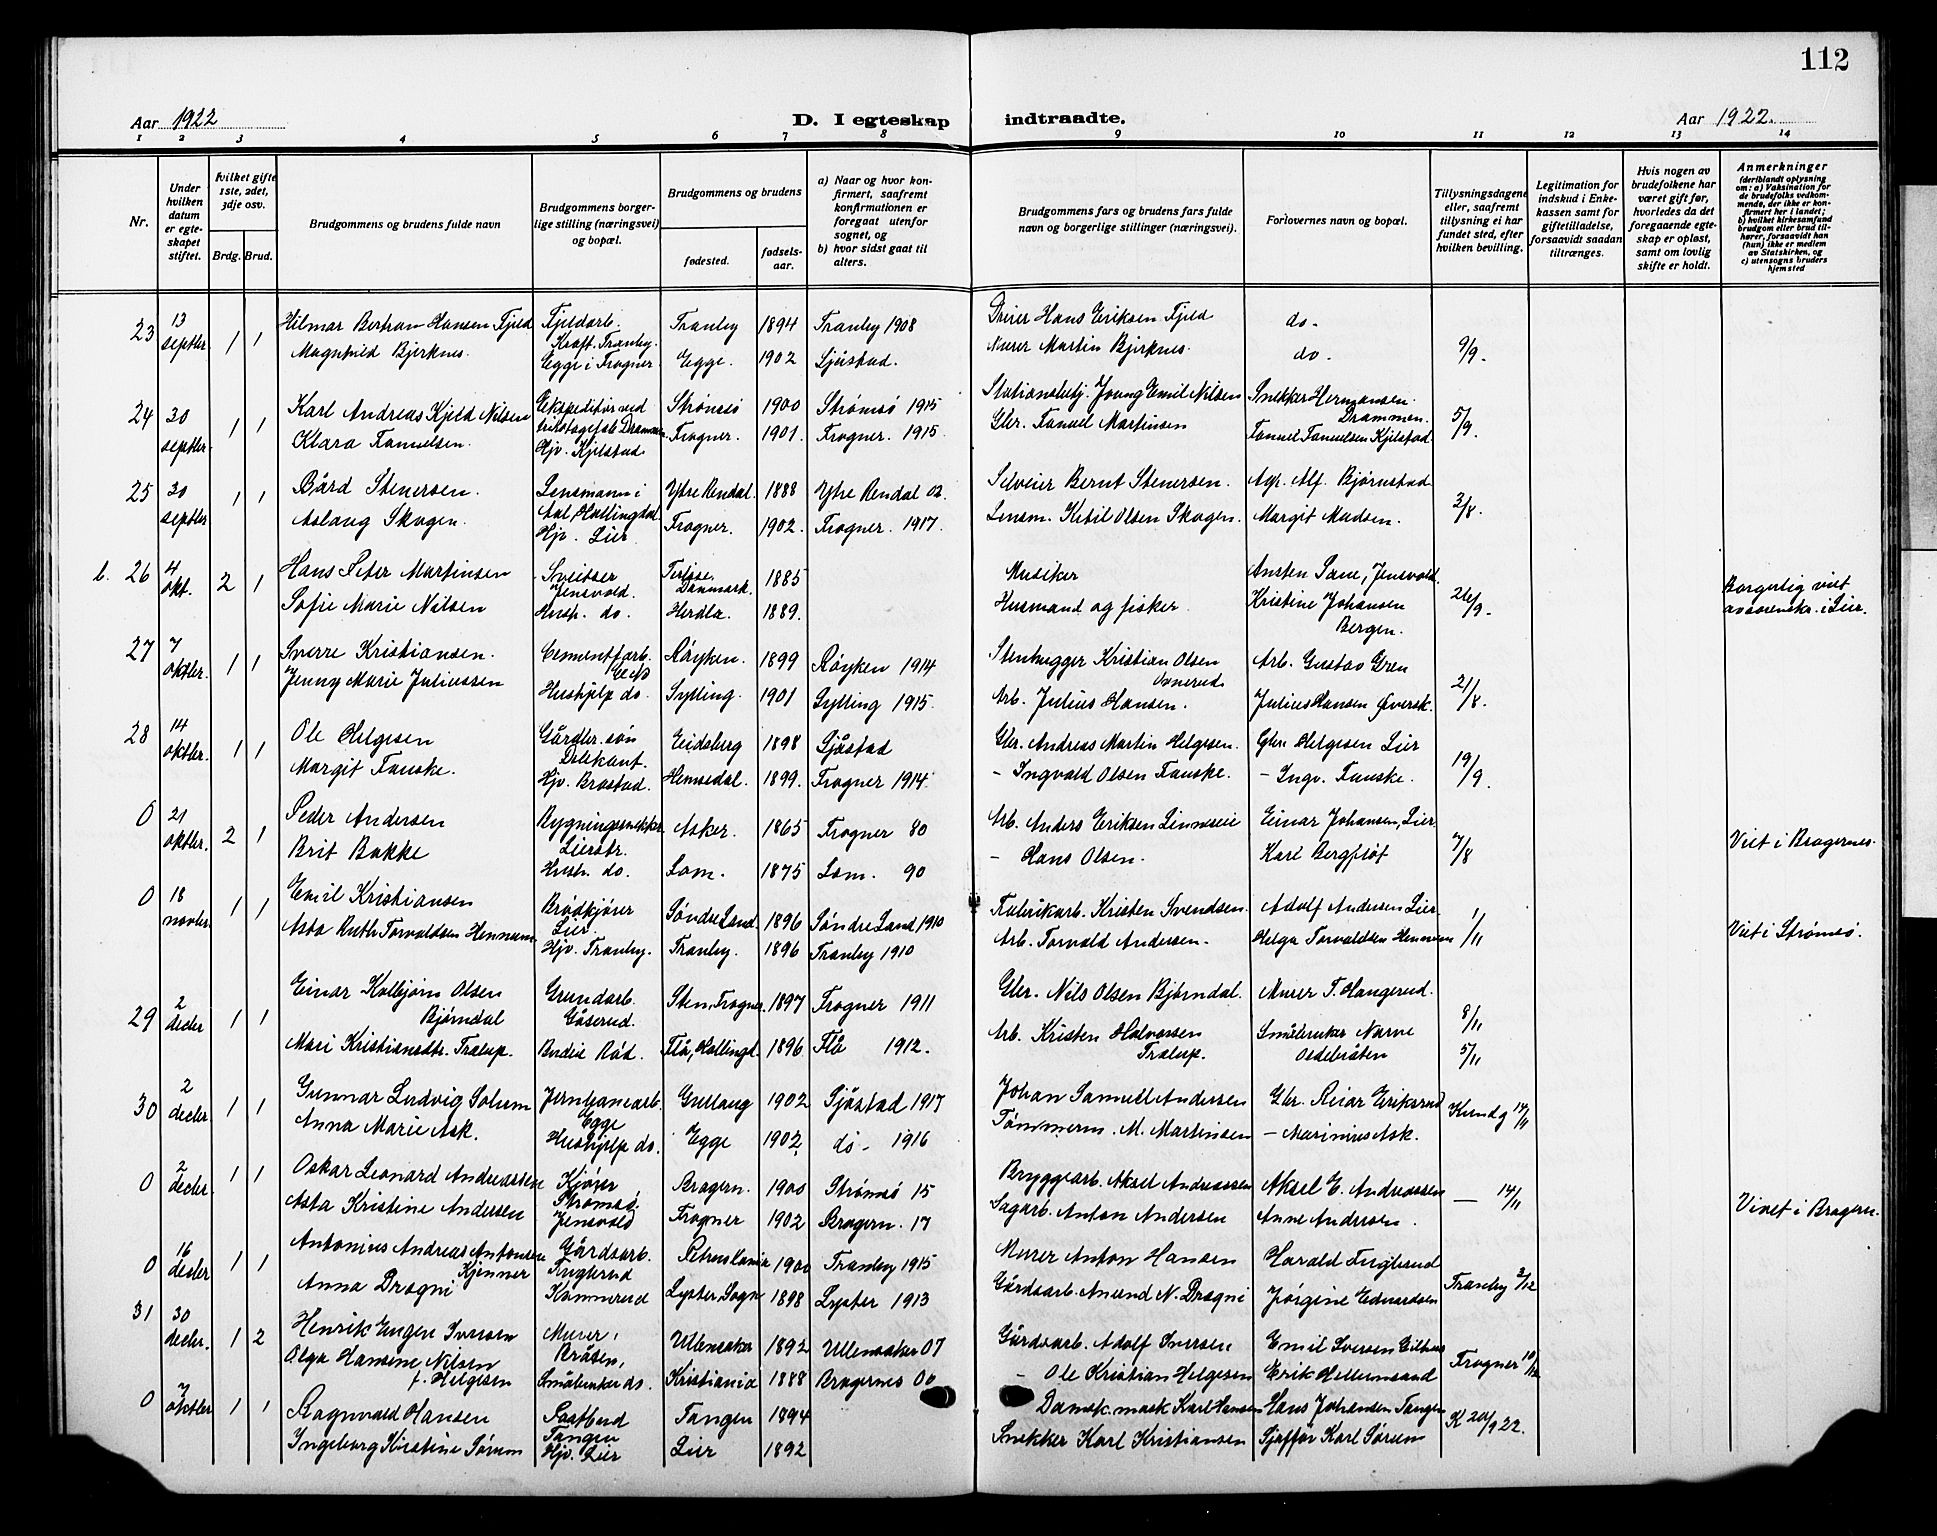 112
Aar 1922
D. I egteskap indtraadte.
Aar 1922.
1 2 3 4 5 6 7 8 9 10 11 12 13 14
Nr.
Under hvilken datum er egteskapet stiftet.
hvilket gifte 1ste, 2det, 3dje osv.
Brdg. Brud.
Brudgommens og brudens fulde navn
Brudgommens borgerlige stilling (næringsvei) og bopæl.
Brudgommens og brudens
fødested.
fødselsaar.
a) Naar og hvor konfirmert, saafremt konfirmationen er foregaat utenfor sognet, og
b) hvor sidst gaat til alters.
Brudgommens fars og brudens fars fulde navn og borgerlige stillinger (næringsvei).
Forlovernes navn og bopæl.
Tillysningsdagene eller, saafremt tillysning ei har fundet sted, efter hvilken bevilling.
Legitimation for indskud i Enkekassen samt for giftetilladelse, forsaavidt saadan tiltrænges.
Hvis nogen av brudefolkene har været gift før, hvorledes da det foregaaende egteskap er opløst, samt om lovlig skifte er holdt.
Anmerkninger
(deriblandt oplysning om: a) Vaksination for de brudefolks vedkommende, der ikke er konfirmert her i landet; b) hvilket kirkesamfund brudgom eller brud tilhører, forsaavidt han (hun) ikke er medlem av Statskirken, og c) utensogns bruders hjemsted
23 13 septbr. 1 1 Hilmar Bertran Hansen Fjeld Fjeldarb. Kraft. Tranby. Tranby 1894 Tranby 1908 Hans Eriksen Fjeld do.
Magnhild Bjerknes. Egge i Frogner Egge. 1902 Sjåstad. Murer Martin Bjerknes. do. 9/9.
24 30 septbr. 1 1 Karl Andreas Kjeld Nilsen Ekspeditør ved Drammen Strømsø 1900 Strømsø 1915 Stationsbetj. Young Emil Nilsen Snekker Hermansen Drammen.
Klara Fanuelsen. Hjv. Kjelstad Frogner. 1901. Frogner. 1915. Gbr. Fanuel Martinsen Fanuel Fanuelsen Kjelstad 5/9.
25 30 septbr 1 1 Bård Stenersen. Lensmann i Aal, Hallingdal Ytre Rendal. 1888 Ytre Rendal 02. Selveier Bernt Stenersen. Agr. Alf. Bjørnstad
Aslaug Skogen. Hjv. Lier Frogner. 1902. Frogner. 1917. Lensm. Ketil Olsen Skogen. Margit Madsen. 3/8.
b. 26 4 okt. 2 1 Hans Peter Martinsen Sveitser Jensvold. Danmark. 1885 Musiker Ansten Sane, Jensvold.
Sofie Marie Nilsen Hush. do. Herdla. 1889. Husmand og fisker. Kristine Johansen Bergen. 26/9. Borgerlig viet av sorenskr. i Lier.
27 7 oktbr. 1 1 Sverre Kristiansen. Cementfarb. Røyken. 1899 Røyken 1914 Stenhugger Kristian Olsen Arb. Gustav Gren
Jenny Marie Juliussen Hushjelp do. Sylling. 1901 Sylling 1915. Arb. Julius Hansen. Julius Hansen Øversk. 21/8.
28 14 oktbr. 1 1 Ole Helgesen Gårdbr. søn Eidsberg 1898 Sjåstad Gbr. Andreas Martin Helgesen. Gbr. Helgesen Lier
Margit Fauske. Hjv. Brastad. Hemsedal. 1899. Frogner 1914. - Ingvald Olsen Fauske. - Ingv. Fauske. 19/9.
0 21 oktbr. 2 1 Peder Andersen Bygningssnekker Lierstr. Asker. 1865 Frogner 80 Arb. Anders Eriksen Linneseie Einar Johansen, Lier.
Brit Bakke Hush. do. Lom. 1875 Lom. 90 - Hans Olsen. Karl Bergfløt 7/8 Viet i Bragernes.
0 18 novbr. 1 1 Emil Kristiansen Brødkjører Lier. Søndre Land. 1896 Søndre Land 1910 Fabrikarb. Kristen Svendsen. Adolf Andersen Lier.
Asta Ruth Torvaldsen Hennum Hjv. Tranby. Tranby. 1896 Tranby 1910 Arb. Torvald Andersen. Helga Torvaldsen Hennum 1/11 Viet i Strømsø.
29 2 decbr 1 1 Einar Kolbjørn Olsen Bjørndal Grundarb. Gåserud. Sten, Frogner. 1897 Frogner 1911 Gbr. Nils Olsen Bjørndal. Murer T. Haugerud. 8/11
Mari Kristiansdtr. Trælup. Budeie Rød. Flå, Hallingd. 1896 Flå 1912. Arb. Kristen Halvorsen Trælup. Småbruker Narve 5/11
30 2 decbr. 1 1 Gunnar Ludvig Solum Jernbanearb. Egge Gullaug 1902 Sjåstad 1917 Johan Samuel Andersen Gbr. Reiar Eriksrud
Anna Marie Ask. Hushjelp do. Egge 1902. do. 1916 Tømmerm. M. Martinsen - Marinius Ask. Kundg 14/11
0 2 decbr. 1 1 Oskar Leonard Andreassen Kjører Strømsø. Bragern. 1900 Strømsø 15 Bryggearb. Aksel Andreassen Aksel E. Andreassen
Asta Kristine Andersen Jensvold Frogner 1902 Bragern. 17 Sagarb. Anton Andersen Anne Andersen. — 14/11 Viet i Bragern.
0 16 decbr 1 1 Antonius Andreas Antonsen Kjenner Gårdsarb. Fuglerud 1900 Tranby 1915 Murer Anton Hansen Harald Fuglerud
Anna Drægni Kammerud Lyster, Sogn 1898 Lyster 1913 Gårdsarb. Amund N. Drægni Jørgine Edvardsen Tranby 3/12
31 30 decbr. 1 2 Henrik Eugen Iversen Murer, Bråsen, Ullensaker 1892 Ullensaker 07 Gårdsarb. Adolf Iversen Emil Iversen
Olga Hansine Nilsen f. Helgesen Småbruker do. Kristiania 1888 Bragernes 00 - Ole Kristian Helgesen Erik Hellumsand Frogner 10/12
0 7 oktbr 1 1 Ragnvald Hansen Tangen Tangen 1894 Dampsk. mask Karl Hansen Hans Johansen Tangen
Ingeborg Kirstine Sørum Hjv. Lier Lier 1892 Snekker Karl Kristiansen Sjaffør Karl Sørum K 20/9 22.